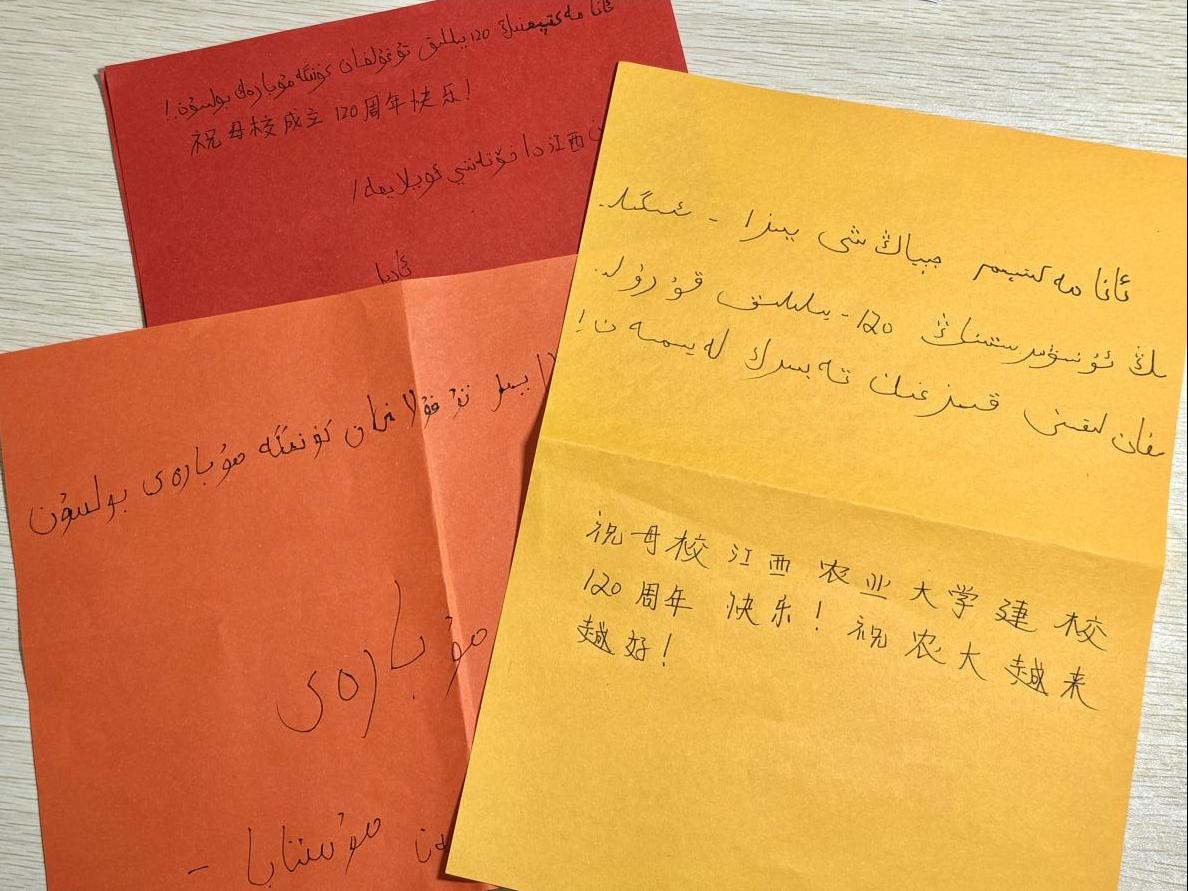 ئانا مەكتىپىمنىڭ 120 يىللىق تۇغۇلغان كۈنىگە مۇبارەك بولسۇن!
祝母校成立120周年快乐!
江西 دا خۆتەننى ئويلايمە!
ئانا مەكتىپىم جياڭشى يېزا - ئىگىلى
ڭ ئۇنىۋېرسىتىنىڭ 120 - يىللىق قۇرۇل
غانلىقىنى قىزغىن تەبرىكلەيمەن!
祝母校江西农业大学建校
120周年快乐!祝农大越来
越好!
يىل تۇغۇلغان كۈنىڭگە مۇبارەى بولسۇن
مۇبارەى